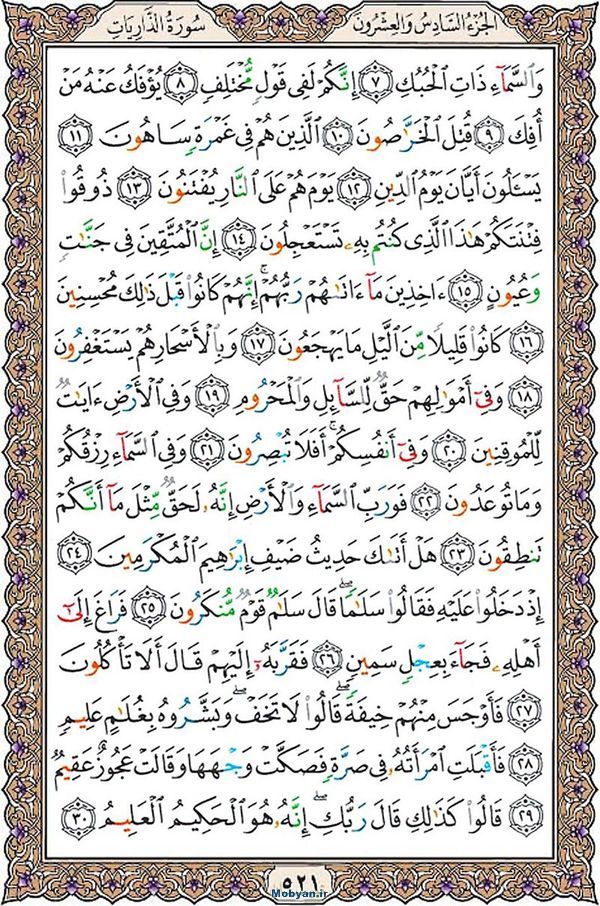 سُورَةُ الذَّارِيَاتِ
الجُزءُ السَّادِسُ وَالعِشْرُونَ
وَالسَّمَآءِ ذَاتِ الْحُبُكِ ﴿٧﴾ إِنَّكُمْ لَفِى قَوْلٍ مُّخْتَلِفٍ ﴿٨﴾ يُؤْفَكُ عَنْهُ مَنْ
أُفِكَ ﴿٩﴾ قُتِلَ الْخَرَّٰصُونَ ﴿١٠﴾ الَّذِينَ هُمْ فِى غَمْرَةٍ سَاهُونَ ﴿١١﴾
يَسْـَٔلُونَ أَيَّانَ يَوْمُ الدِّينِ ﴿١٢﴾ يَوْمَ هُمْ عَلَى النَّارِ يُفْتَنُونَ ﴿١٣﴾ ذُوقُوا۟
فِتْنَتَكُمْ هَٰذَا الَّذِى كُنتُم بِهِۦ تَسْتَعْجِلُونَ ﴿١٤﴾ إِنَّ الْمُتَّقِينَ فِى جَنَّٰتٍ
وَعُيُونٍ ﴿١٥﴾ ءَاخِذِينَ مَآ ءَاتَىٰهُمْ رَبُّهُمْ ۚ إِنَّهُمْ كَانُوا۟ قَبْلَ ذَٰلِكَ مُحْسِنِينَ
﴿١٦﴾ كَانُوا۟ قَلِيلًا مِّنَ الَّيْلِ مَا يَهْجَعُونَ ﴿١٧﴾ وَبِالْأَسْحَارِ هُمْ يَسْتَغْفِرُونَ
﴿١٨﴾ وَفِىٓ أَمْوَٰلِهِمْ حَقٌّ لِّلسَّآئِلِ وَالْمَحْرُومِ ﴿١٩﴾ وَفِى الْأَرْضِ ءَايَٰتٌ
لِّلْمُوقِنِينَ ﴿٢٠﴾ وَفِىٓ أَنفُسِكُمْ ۚ أَفَلَا تُبْصِرُونَ ﴿٢١﴾ وَفِى السَّمَآءِ رِزْقُكُمْ
وَمَا تُوعَدُونَ ﴿٢٢﴾ فَوَرَبِّ السَّمَآءِ وَالْأَرْضِ إِنَّهُۥ لَحَقٌّ مِّثْلَ مَآ أَنَّكُمْ
تَنطِقُونَ ﴿٢٣﴾ هَلْ أَتَىٰكَ حَدِيثُ ضَيْفِ إِبْرَٰهِيمَ الْمُكْرَمِينَ ﴿٢٤﴾
إِذْ دَخَلُوا۟ عَلَيْهِ فَقَالُوا۟ سَلَٰمًا ۖ قَالَ سَلَٰمٌ قَوْمٌ مُّنكَرُونَ ﴿٢٥﴾ فَرَاغَ إِلَىٰٓ
أَهْلِهِۦ فَجَآءَ بِعِجْلٍ سَمِينٍ ﴿٢٦﴾ فَقَرَّبَهُۥٓ إِلَيْهِمْ قَالَ أَلَا تَأْكُلُونَ
﴿٢٧﴾ فَأَوْجَسَ مِنْهُمْ خِيفَةً ۖ قَالُوا۟ لَا تَخَفْ ۖ وَبَشَّرُوهُ بِغُلَٰمٍ عَلِيمٍ
﴿٢٨﴾ فَأَقْبَلَتِ امْرَأَتُهُۥ فِى صَرَّةٍ فَصَكَّتْ وَجْهَهَا وَقَالَتْ عَجُوزٌ عَقِيمٌ
﴿٢٩﴾ قَالُوا۟ كَذَٰلِكِ قَالَ رَبُّكِ ۖ إِنَّهُۥ هُوَ الْحَكِيمُ الْعَلِيمُ ﴿٣٠﴾
٥٢١
Mobyan.ir